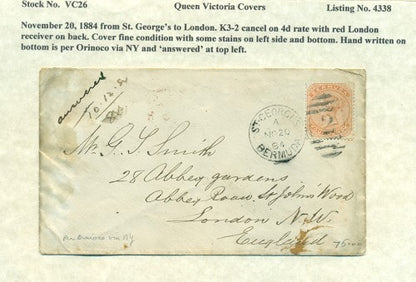 Stock No. VC26 Queen Victoria Covers Listing No. 4338
November 20, 1884 from St. George's to London. K3-2 cancel on 4d rate with red London
receiver on back. Cover fine condition with some stains on left side and bottom. Hand written on
bottom is per Orinoco via NY and 'answered' at top left.
answered
10.12.84
ST. GEORGES
A
NO 20
84
BERMUDA
2
Mr. G. S. Smith
28 Abbey gardens
Abbey Road, St John's Wood
London N.W.
England
Per Orinoco via NY
75.00